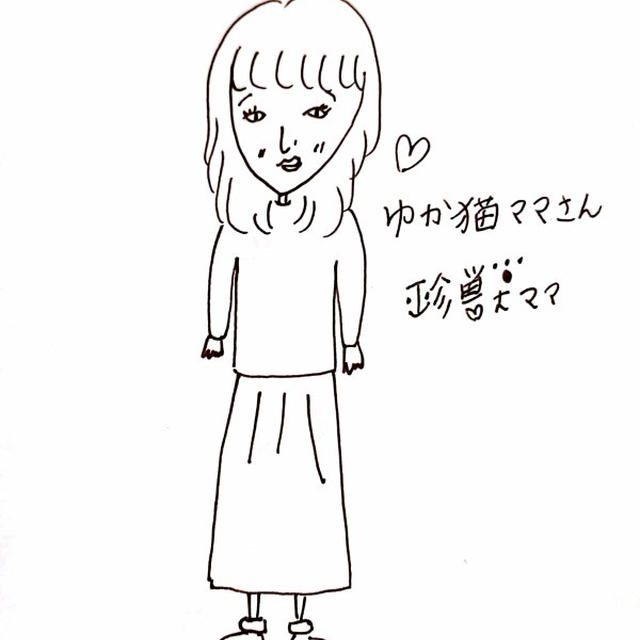 ゆか猫ママさん
珍獣ママ